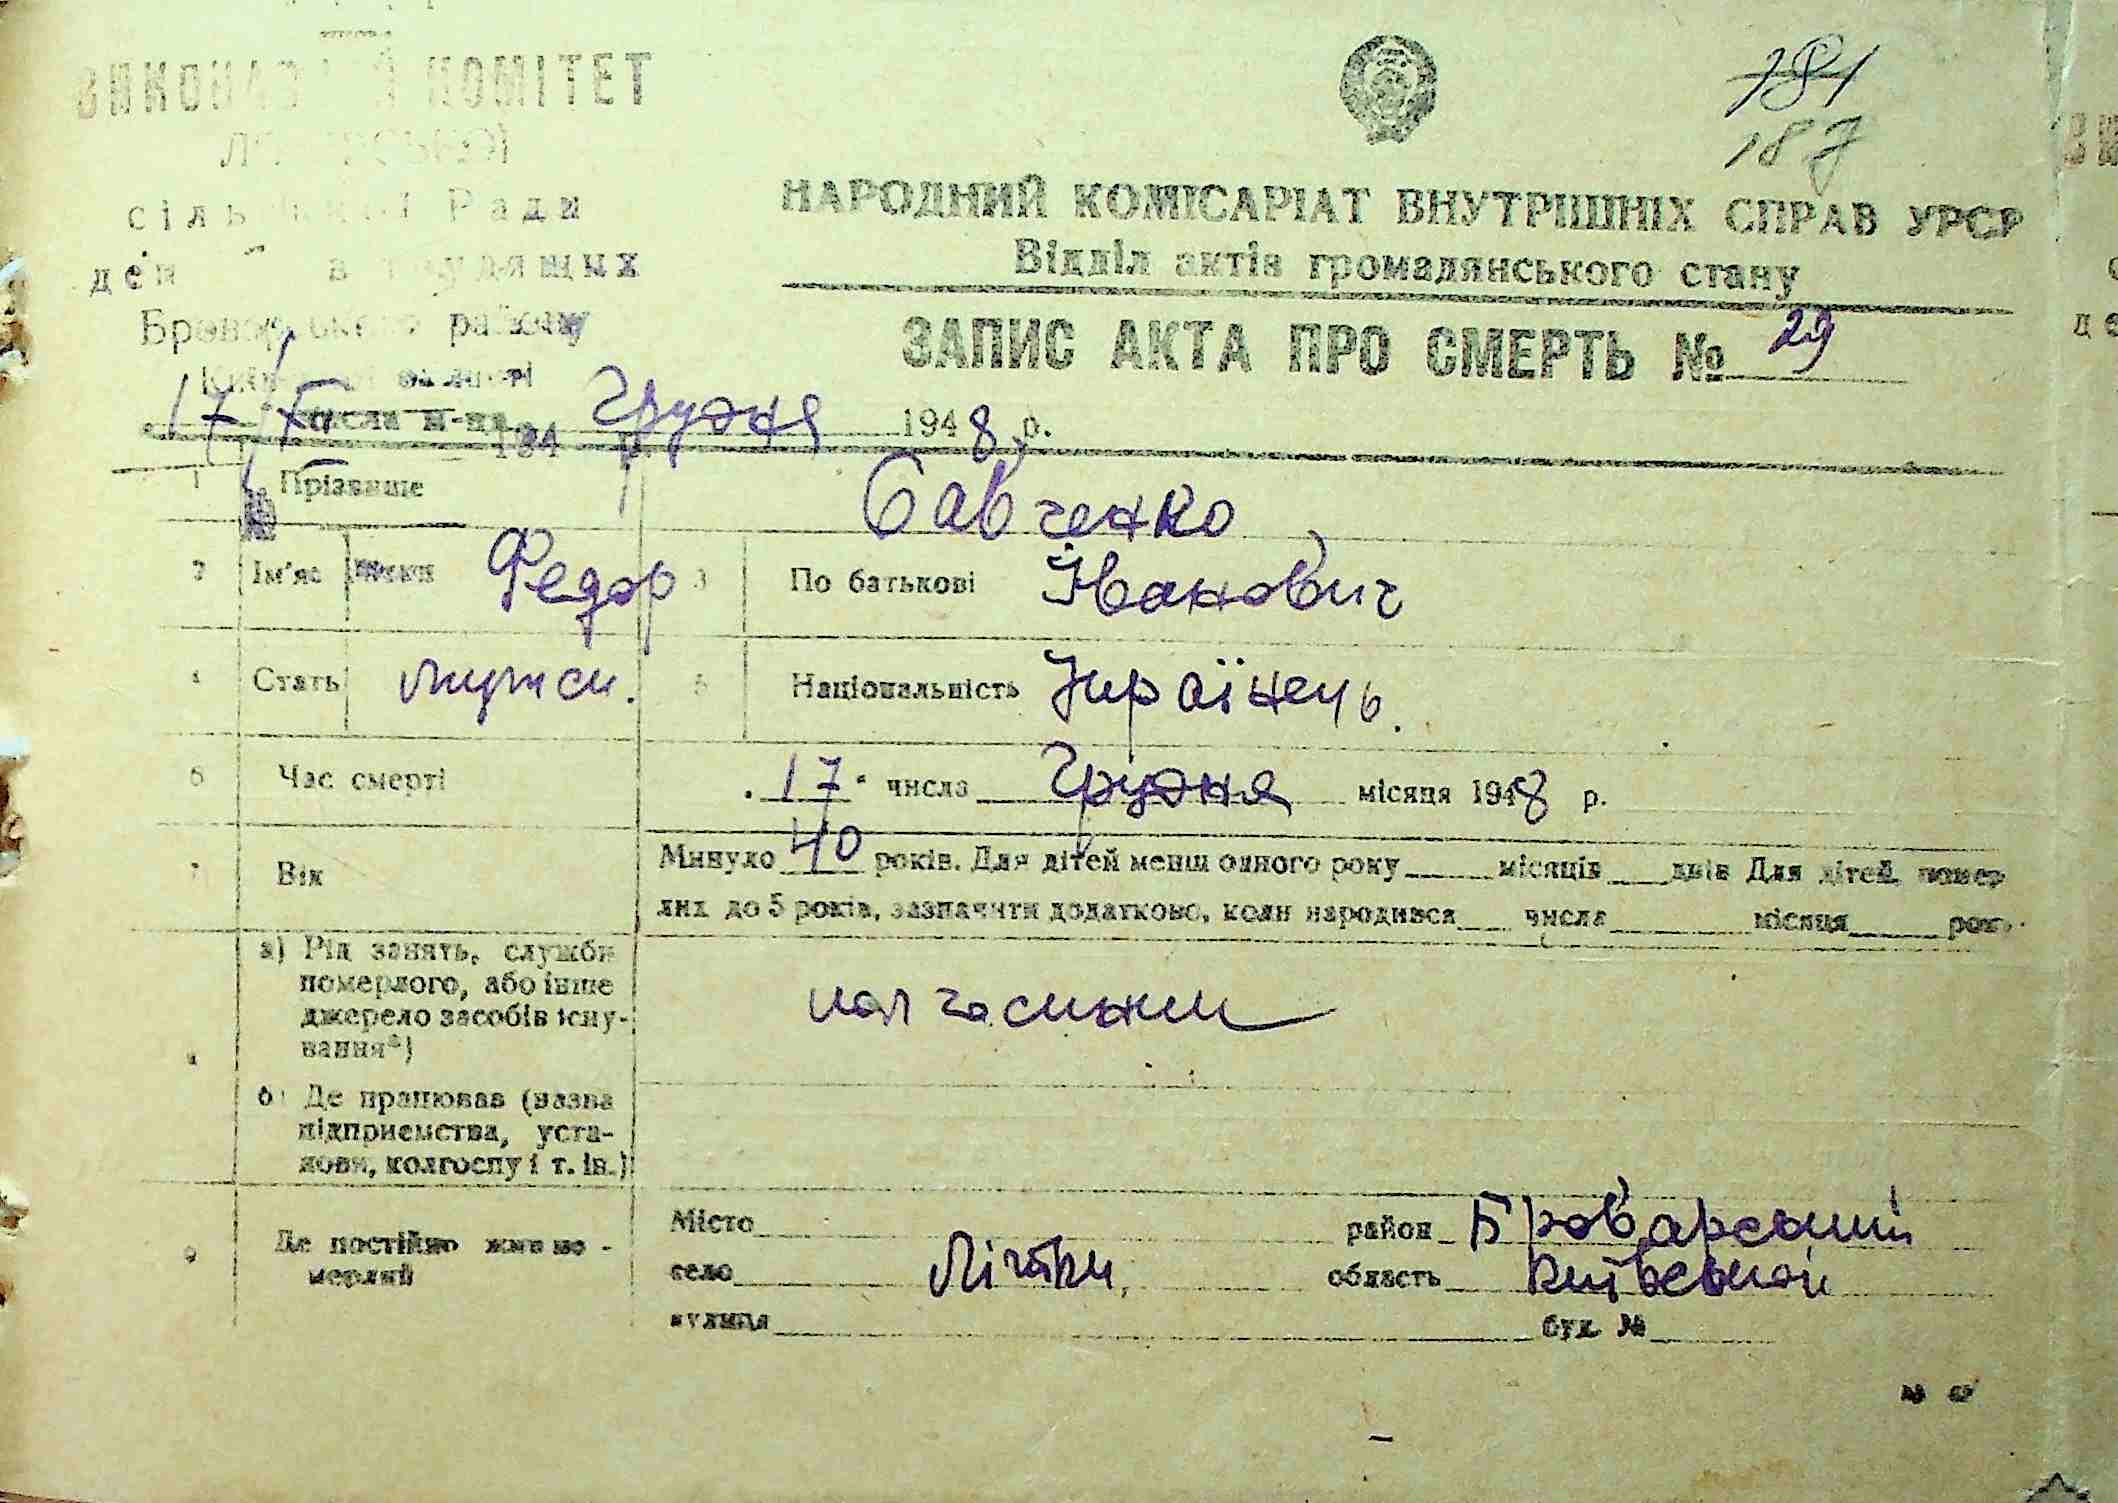 ВИКОНАВЧИЙ КОМІТЕТ
сільської Ради
депутатів трудящих
Броварського району
Київської області
181
187
НАРОДНИЙ КОМІСАРІАТ ВНУТРІШНІХ СПРАВ УРСР
Відділ актів громадянського стану
ЗАПИС АКТА ПРО СМЕРТЬ № 29
17 числа м-ця Грудня 1948 р.
1 Прізвище Савченко
2 Ім'я Федор 3 По батькові Іванович
4 Стать мужск. 5 Національність Українець.
6 Час смерті „17“ числа Грудня місяця 1948 р.
7 Вік Минуло 40 років. Для дітей менш одного року місяців днів Для дітей, помер
лих до 5 років, зазначити додатково, коли народився числа місяця рок
а) Рід занять, служби
померлого, або інше
джерело засобів існу-
вання*)
колгосник
б) Де працював (назва
підприємства, уста-
нови, колгоспу і т. ін.)
9 Де постійно жив по-
мерлий
Місто район Броварський
село Літки, область Київської
вулиця буд. №